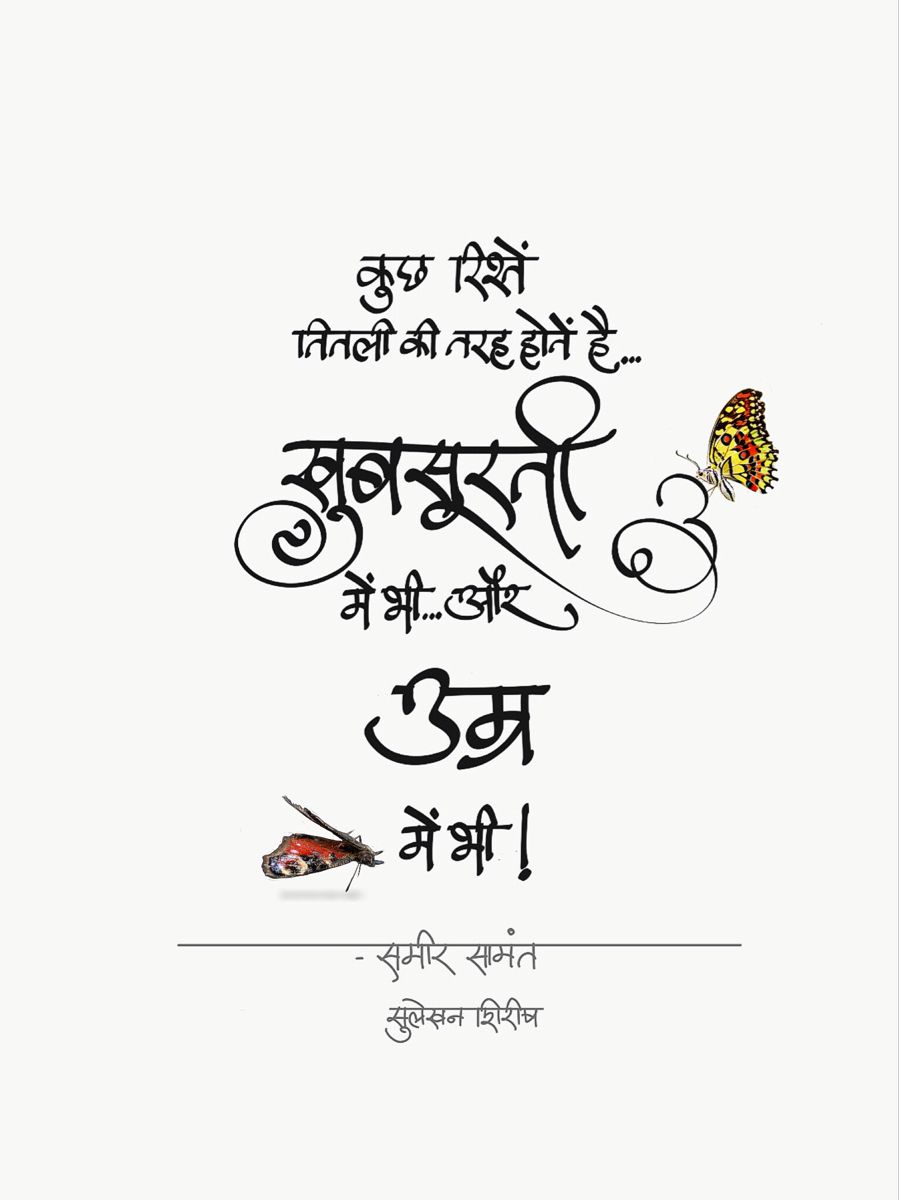 कुछ रिश्तें
तितली की तरह होतें है...
खुबसुरती
में भी...और
उम्र
में भी!
- समीर सामंत
सुलेखन शिरीष